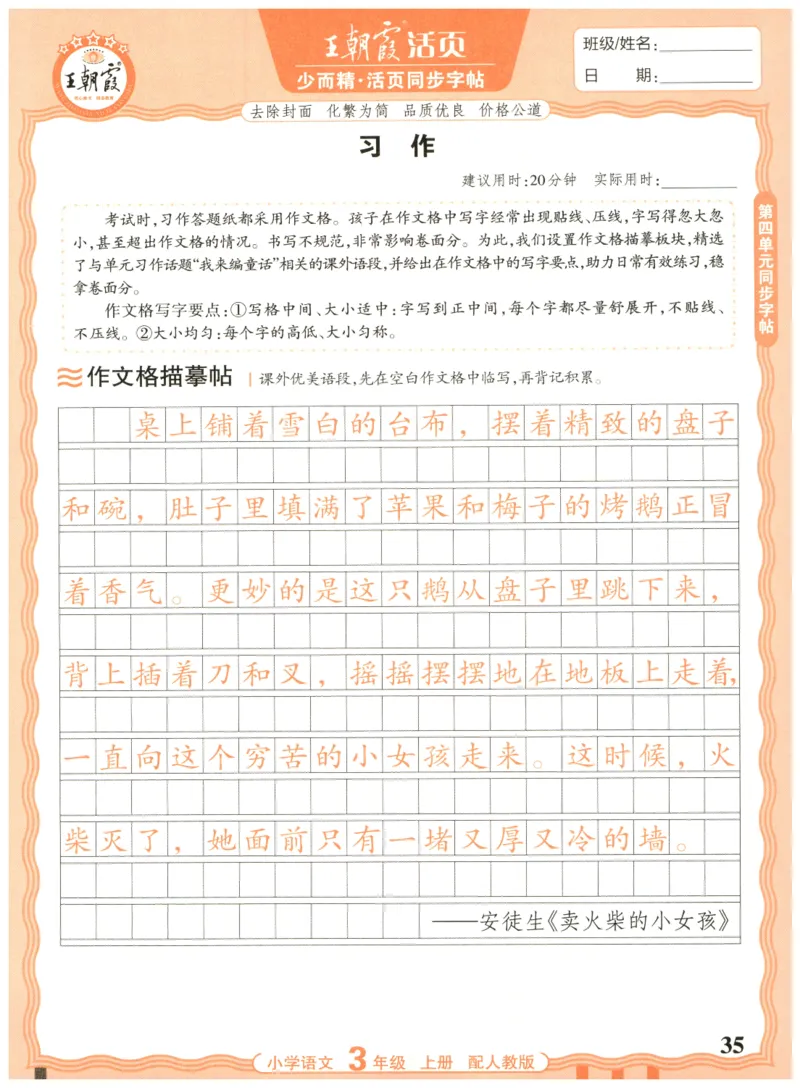 王朝霞活页
少而精·活页同步字帖
王朝霞
班级/姓名:
日 期:
去除封面 化繁为简 品质优良 价格公道
习 作
建议用时:20分钟 实际用时:
考试时,习作答题纸都采用作文格。孩子在作文格中写字经常出现贴线、压线,字写得忽大忽
小,甚至超出作文格的情况。书写不规范,非常影响卷面分。为此,我们设置作文格描摹板块,精选
了与单元习作话题“我来编童话”相关的课外语段,并给出在作文格中的写字要点,助力日常有效练习,稳
拿卷面分。
作文格写字要点:①写格中间、大小适中:字写到正中间,每个字都尽量舒展开,不贴线、
不压线。②大小均匀:每个字的高低、大小匀称。
第四单元同步字帖
作文格描摹帖 | 课外优美语段,先在空白作文格中临写,再背记积累。
桌上铺着雪白的台布,摆着精致的盘子
和碗,肚子里填满了苹果和梅子的烤鹅正冒
着香气。更妙的是这只鹅从盘子里跳下来,
背上插着刀和叉,摇摇摆摆地在地板上走着,
一直向这个穷苦的小女孩走来。这时候,火
柴灭了,她面前只有一堵又厚又冷的墙。
——安徒生《卖火柴的小女孩》
35
小学语文 3年级 上册 配人教版